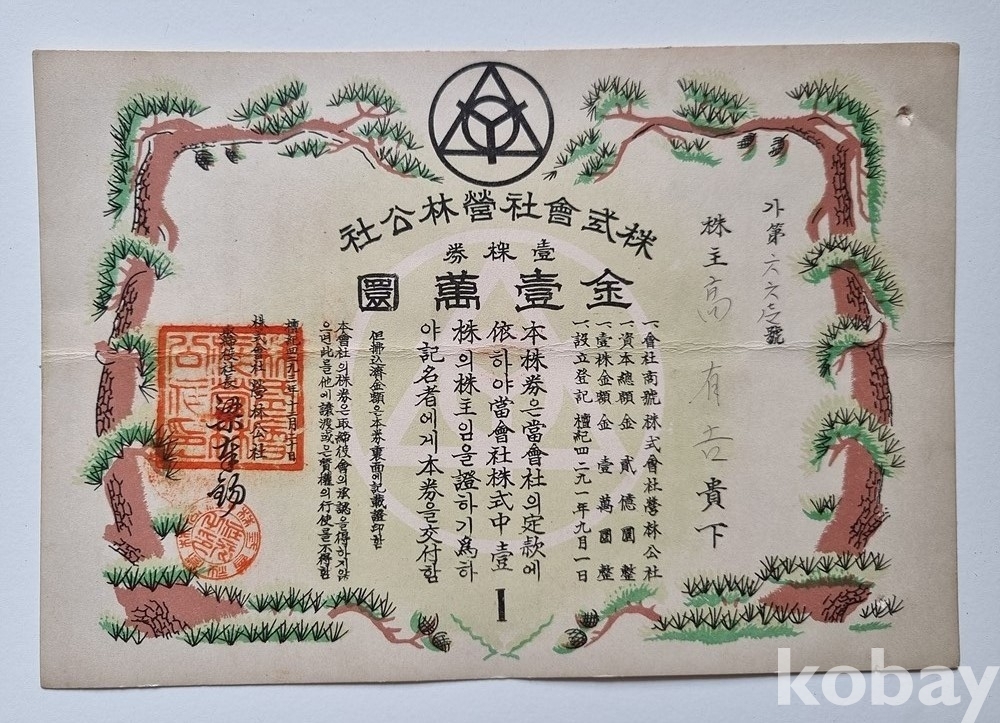 株式會社營林公社
壹株券
金壹萬圜
가第六六壱號
株主 高有吉 貴下
一、會社商號 株式會社營林公社
一、資本總額 金 貳億圜整
一、壹株金額 金 壹萬圜整
一、設立登記 檀紀四二九一年九月一日
本株券은當會社의定款에
依하야當會社株式中壹
株의株主임을證하기爲하
야記名者에게本券을交付함
但拂込濟金額은本券裏面에記載證印함
本會社의株券은取締役會의承認을得하지않
으면此를他에讓渡或은質權의行使를不得함
檀紀四二九二年十二月二十日
株式會社 營林公社
社長 梁
I
kobay